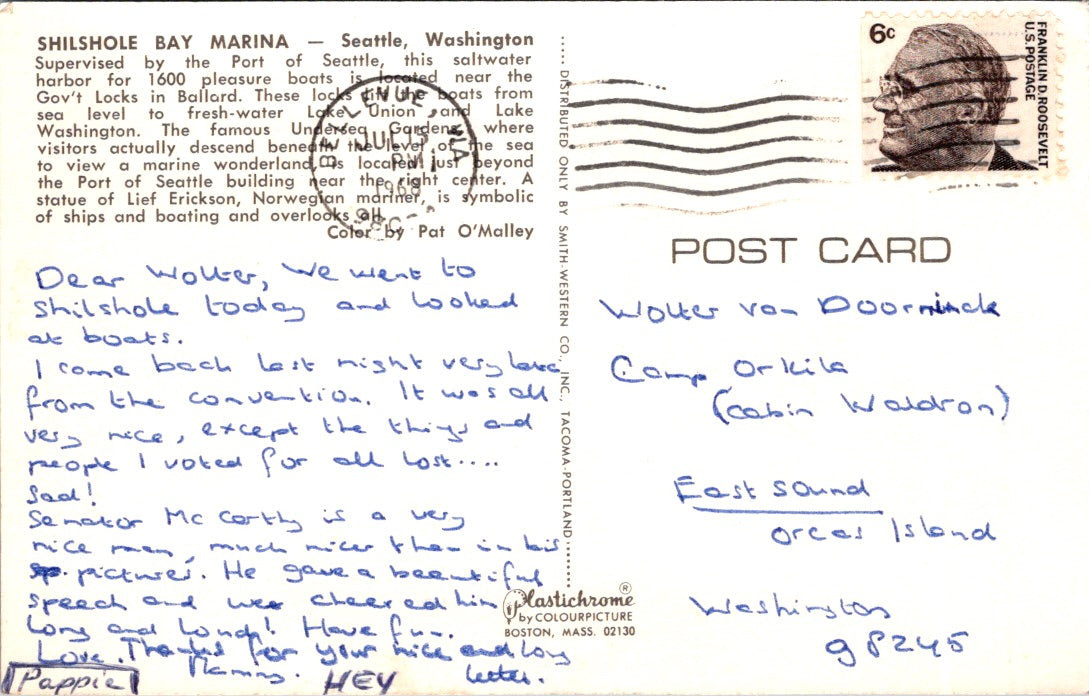 SHILSHOLE BAY MARINA — Seattle, Washington
Supervised by the Port of Seattle, this saltwater
harbor for 1600 pleasure boats is located near the
Gov't Locks in Ballard. These locks lift the boats from
sea level to fresh-water Lake Union and Lake
Washington. The famous Undersea Gardens, where
visitors actually descend beneath the level of the sea
to view a marine wonderland, is located just beyond
the Port of Seattle building near the right center. A
statue of Lief Erickson, Norwegian mariner, is symbolic
of ships and boating and overlooks all.
Color by Pat O'Malley
BELLEVUE, WA
PM
1968
Dear Wolter, We went to
Shilshole today and looked
at boats.
I come back last night very late
from the convention. It was all
very nice, except the things and
people I voted for all lost....
Sad!
Senator Mc Carthy is a very
nice man, much nicer than in his
pictures. He gave a beautiful
speech and we cheered him
long and loud! Have fun.
Love. Thanks for your nice and long
Mammy. letter.
Pappie HEY
DISTRIBUTED ONLY BY SMITH-WESTERN CO., INC., TACOMA-PORTLAND
Plastichrome ®
by COLOURPICTURE
BOSTON, MASS. 02130
6c
FRANKLIN D. ROOSEVELT
U.S. POSTAGE
POST CARD
Wolter van Doorninck
Camp Orkila
(cabin Waldron)
East Sound
Orcas Island
Washington
98245